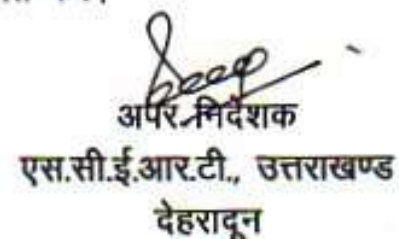 अपर निदेशक
एस.सी.ई.आर.टी., उत्तराखण्ड
देहरादून